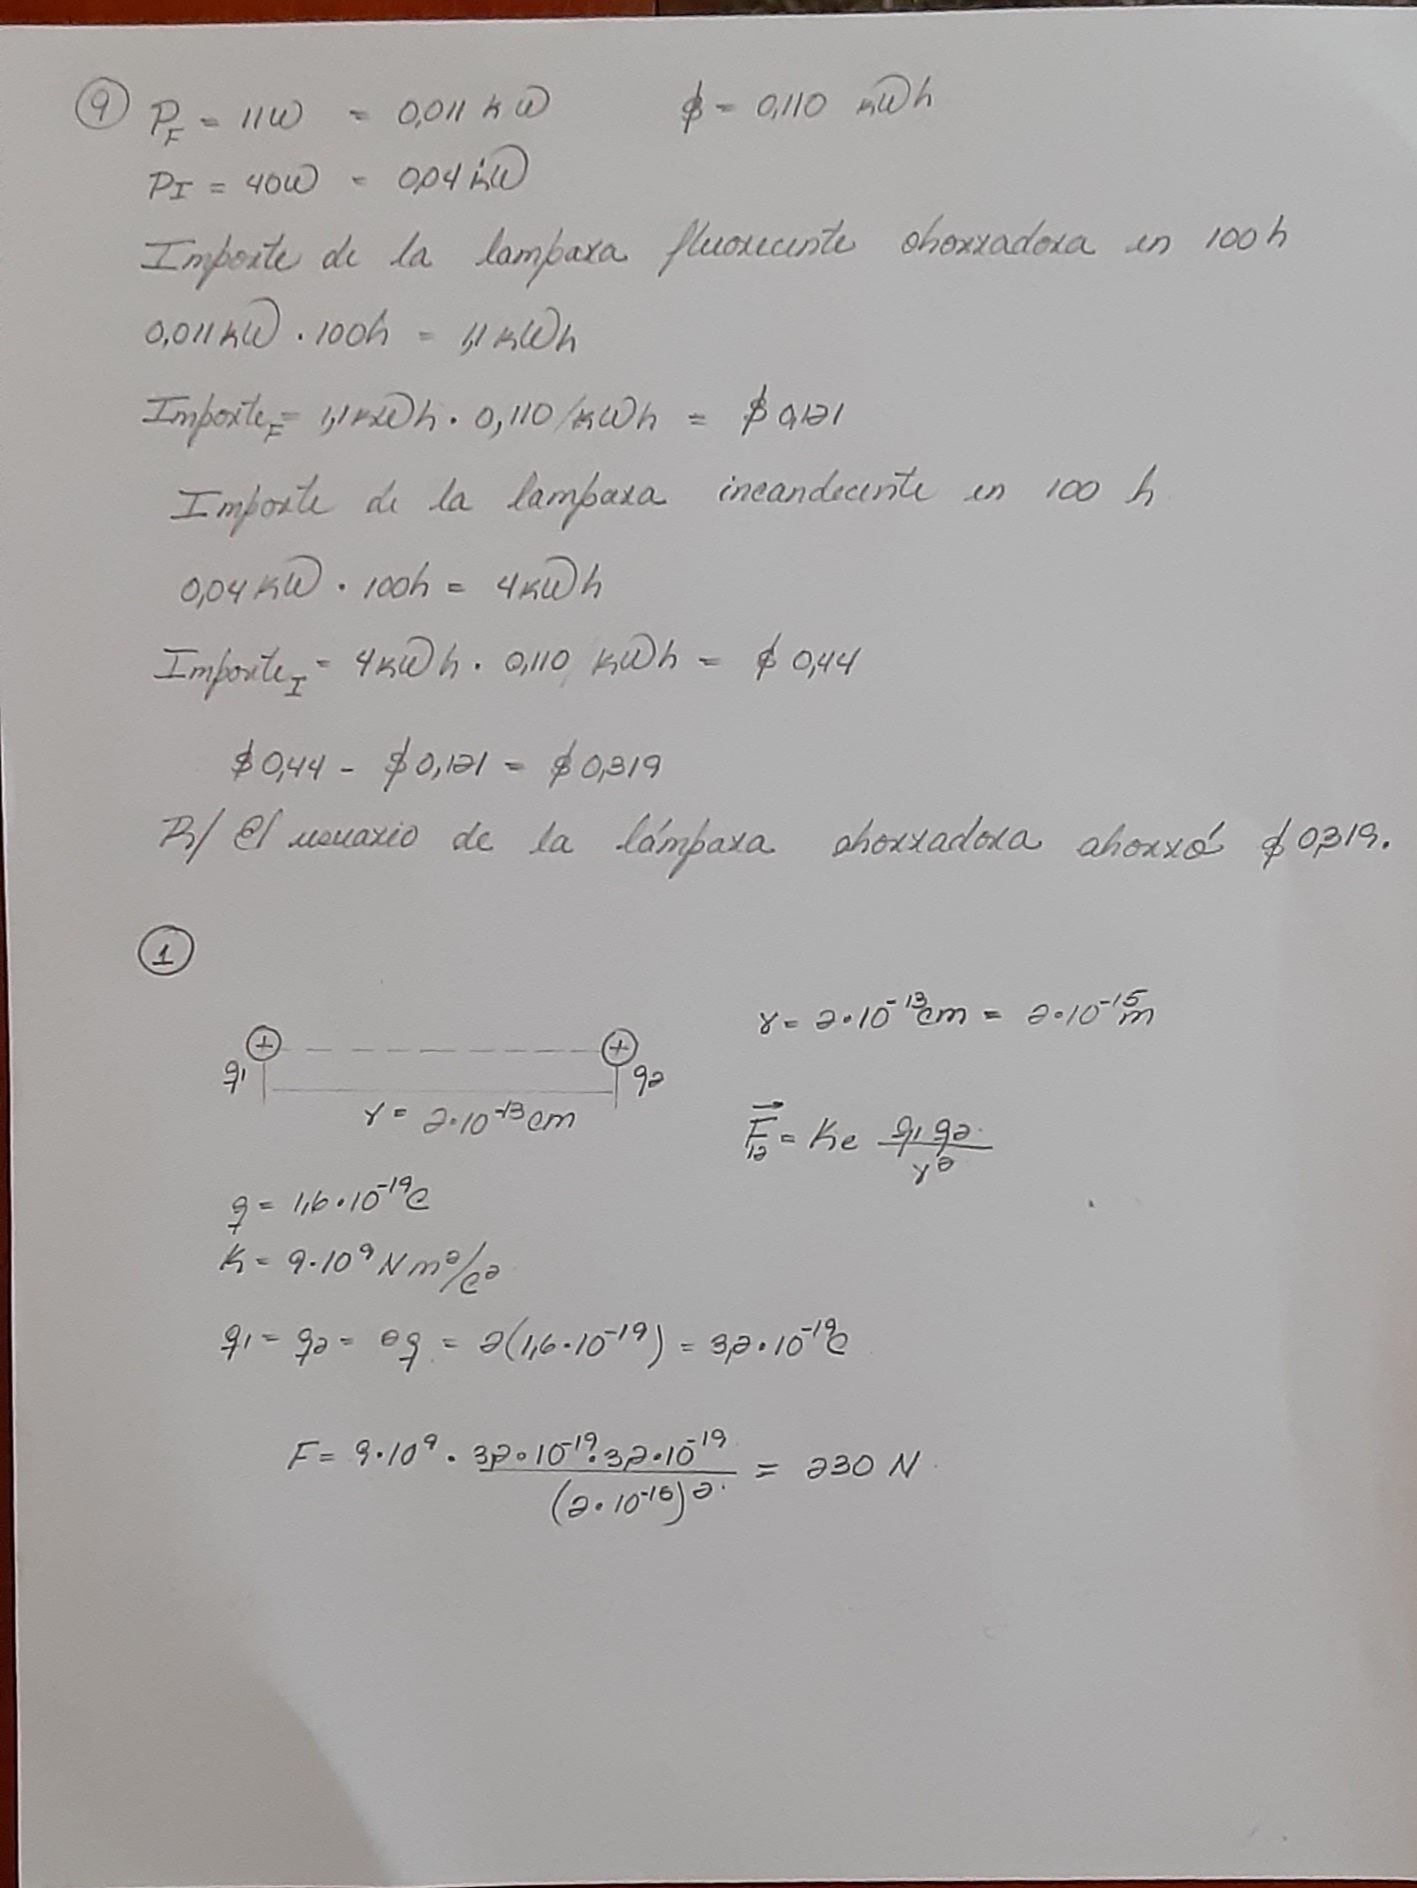 9 P_F = 11W = 0,011 kW $ = 0,110 kWh
P_I = 40W = 0,04 kW
Importe de la lampara fluorecente ahorradora en 100h
0,011 kW · 100h = 1,1 kWh
Importe_F = 1,1 kWh · 0,110/kWh = $ 0,121
Importe de la lampara incandecente en 100 h
0,04 kW · 100h = 4 kWh
Importe_I = 4 kWh · 0,110 kWh = $ 0,44
$ 0,44 - $ 0,121 = $ 0,319
R/ El usuario de la lámpara ahorradora ahorró $ 0,319.
1
r = 2·10⁻¹³cm = 2·10⁻¹⁵m
+ +
q1 q2
r = 2·10⁻¹³cm
F₁₂ = Ke q1 q2 / r²
q = 1,6·10⁻¹⁹C
K = 9·10⁹ N m²/c²
q1 = q2 = 2q = 2(1,6·10⁻¹⁹) = 3,2·10⁻¹⁹C
F = 9·10⁹ · 3,2·10⁻¹⁹·3,2·10⁻¹⁹ / (2·10⁻¹⁵)² = 230 N